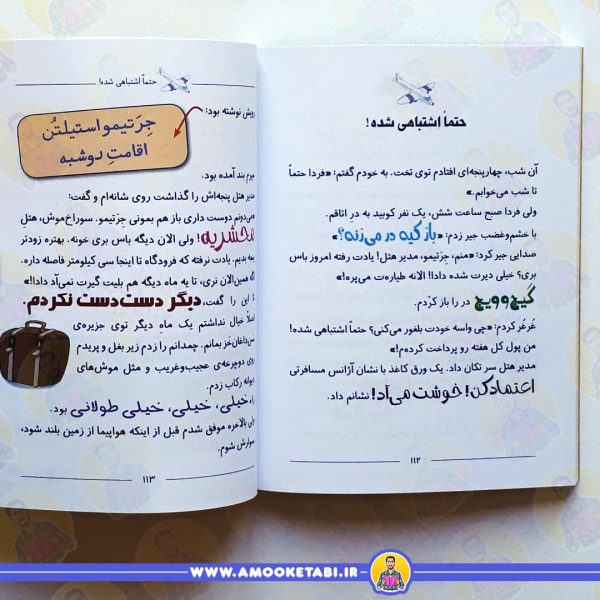 حتماً اشتباهی شده!
آن شب، چهارپنجه‌ای افتادم توی تخت. به خودم گفتم: «فردا حتماً
تا شب می‌خوابم.»
ولی فردا صبح ساعت شش، یک نفر کوبید به درِ اتاقم.
با خشم‌وغضب جیر زدم: «باز کیه در می‌زنه؟»
صدایی جیر کرد: «منم، جِرَتیمو، مدیر هتل! یادت رفته امروز باس
بری؟ خیلی دیرت شده دادا! الانه طیاره‌ت می‌پره!»
گیج‌وویج در را باز کردم.
غُرغُر کردم: «چی واسه خودت بلغور می‌کنی؟ حتماً اشتباهی شده!
من پول کل هفته رو پرداخت کرده‌م!»
مدیر هتل سر تکان داد. یک ورق کاغذ با نشان آژانس مسافرتی
اعتماد کن! خوشت می‌آد! نشانم داد.
۱۱۲
حتماً اشتباهی شده!
رویش نوشته بود:
جِرَتیمو استیلتُن
اقامتِ دوشبه
جیرم بند آمده بود.
مدیر هتل پنجه‌اش را گذاشت روی شانه‌ام و گفت:
«می‌دونم دوست داری باز هم بمونی جِرَتیمو. سوراخ‌موش، هتلِ
محشریه! ولی الان دیگه باس بری خونه. بهتره زودتر
بجنبی. یادت نرفته که فرودگاه تا اینجا سی کیلومتر فاصله داره.
اگه همین‌الان نری، تا یه ماه دیگه هم بلیت گیرت نمی‌آد دادا!»
تا این را گفت، دیگر دست‌دست نکردم.
اصلاً خیال نداشتم یک ماه دیگر توی جزیره‌ی
من‌داغان‌خَر بمانم. چمدانم را زدم زیر بغل و پریدم
روی دوچرخه‌ی عجیب‌وغریب و مثل موش‌های
دیوانه رکاب زدم.
راه خیلی، خیلی، خیلی طولانی بود.
ولی بالاخره موفق شدم قبل از اینکه هواپیما از زمین بلند شود،
سوارش شوم.
۱۱۳
WWW.AMOOKETABI.IR